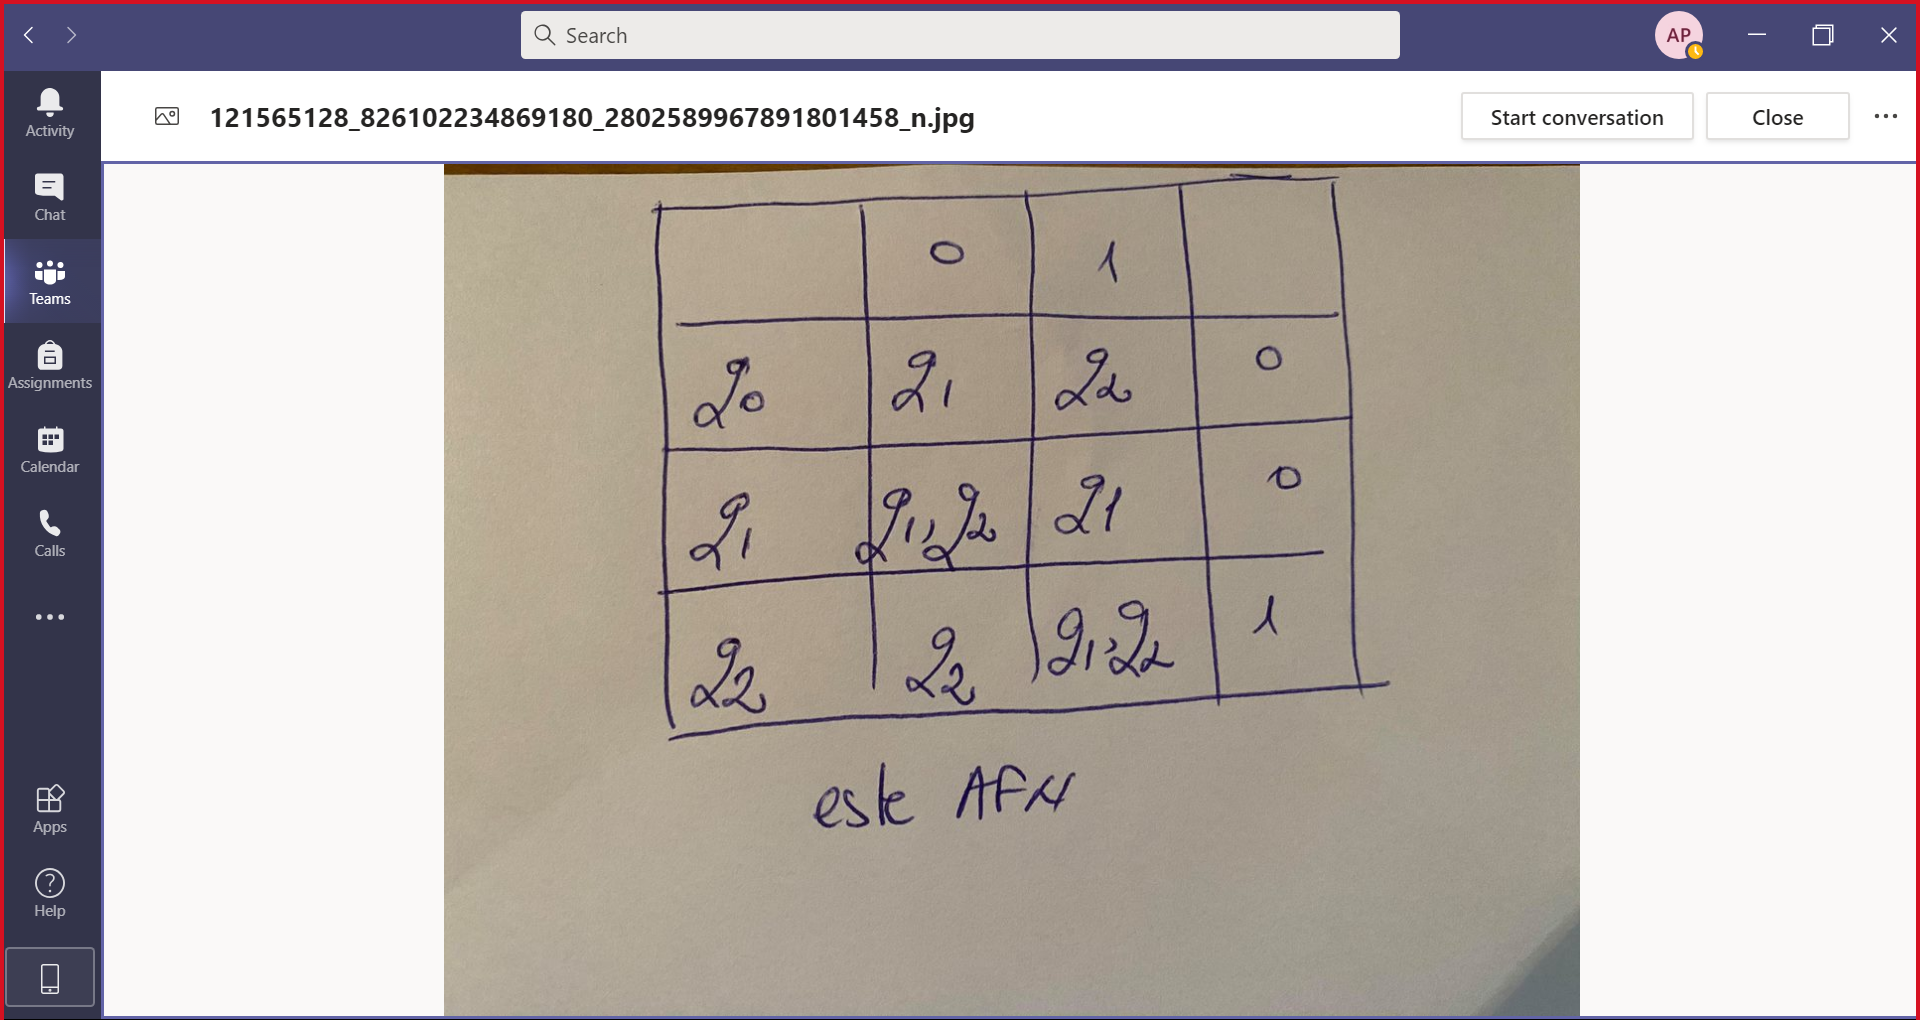 Search
AP
Activity
Chat
Teams
Assignments
Calendar
Calls
Apps
Help
121565128_826102234869180_2802589967891801458_n.jpg
Start conversation
Close
0 1
q0 q1 q2 0
q1 q1,q2 q1 0
q2 q2 q1,q2 1
este AFN